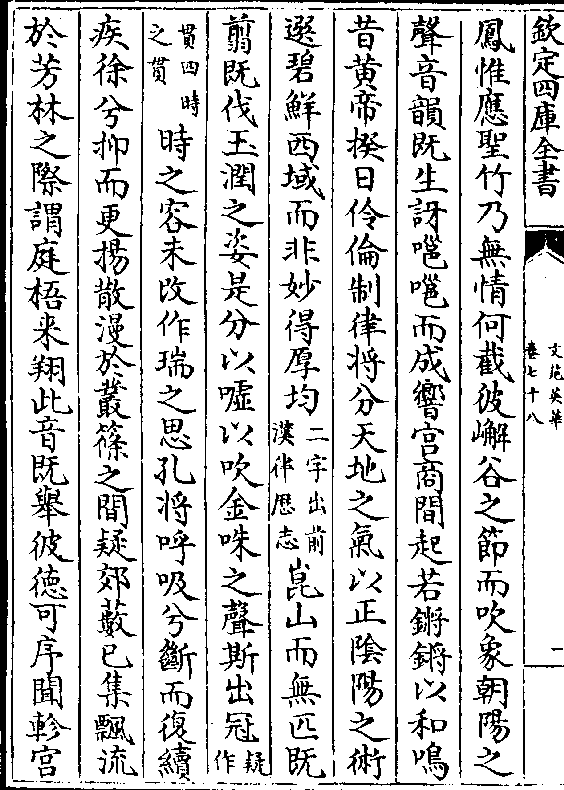 欽定四庫全書
文苑英華
卷七十八
一
鳳惟應聖竹乃無情何截彼嶰谷之節而吹象朝陽之
聲音韻既生訝嗈嗈而成響宮商間起若鏘鏘以和鳴
昔黄帝揆日伶倫制律將分天地之氣以正陰陽之術
選碧鮮西域而非妙得厚均二字出前漢律歴志崑山而無匹既
翦既伐玉潤之姿是分以噓以吹金咮之聲斯出冠疑作
貫四時之貫時之容未改作瑞之思孔將呼吸兮斷而復續
疾徐兮抑而更揚散漫於叢篠之間疑郊藪已集飄流
於芳林之際謂庭梧来翔此音既舉彼德可序聞軫宮